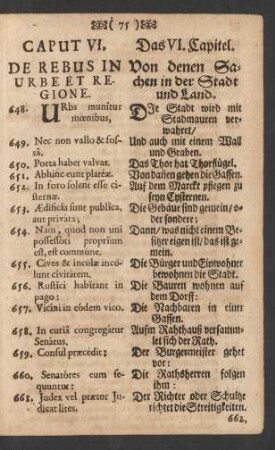 ( 75 )
CAPUT VI.
DE REBUS IN
URBE ET RE-
GIONE.
648. URbs munitur
mœnibus,
649. Nec non vallo & fos-
sâ.
650. Porta habet valvas.
651. Abhinc eunt plateæ.
652. In foro solent esse ci-
sternæ.
653. Ædificia sunt publica,
aut privata;
654. Nam, quod non uni
possessori proprium
est, est commune.
655. Cives & incolæ inco-
lunt civitatem.
656. Rustici habitant in
pago:
657. Vicini in eôdem vico.
658. In curiâ congregâtur
Senâtus,
659. Consul præcêdit:
660. Senatôres eum se-
quuntur:
661. Judex vel prætor Ju-
dicat lites.
Das VI. Capitel.
Von denen Sa-
chen in der Stadt
und Land.
DIe Stadt wird mit
Stadmauren ver-
wahret/
Und auch mit einem Wall
und Graben.
Das Thor hat Thorflügel.
Von dañen gehen die Gassen.
Auf dem Marckt pflegen zu
seyn Cysternen.
Die Gebäue sind gemein/ o-
der sondere:
Dann/ was nicht einem Be-
sitzer eigen ist/ das ist ge-
mein.
Die Bürger und Einwohner
bewohnen die Stadt.
Die Bauren wohnen auf
dem Dorff:
Die Nachbaren in einer
Gassen.
Aufm Rahthauß versamm-
let sich der Rath.
Der Burgemeister gehet
vor:
Die Rathsherren folgen
ihm:
Der Richter oder Schultze
richtet die Streitigkeiten.
662.